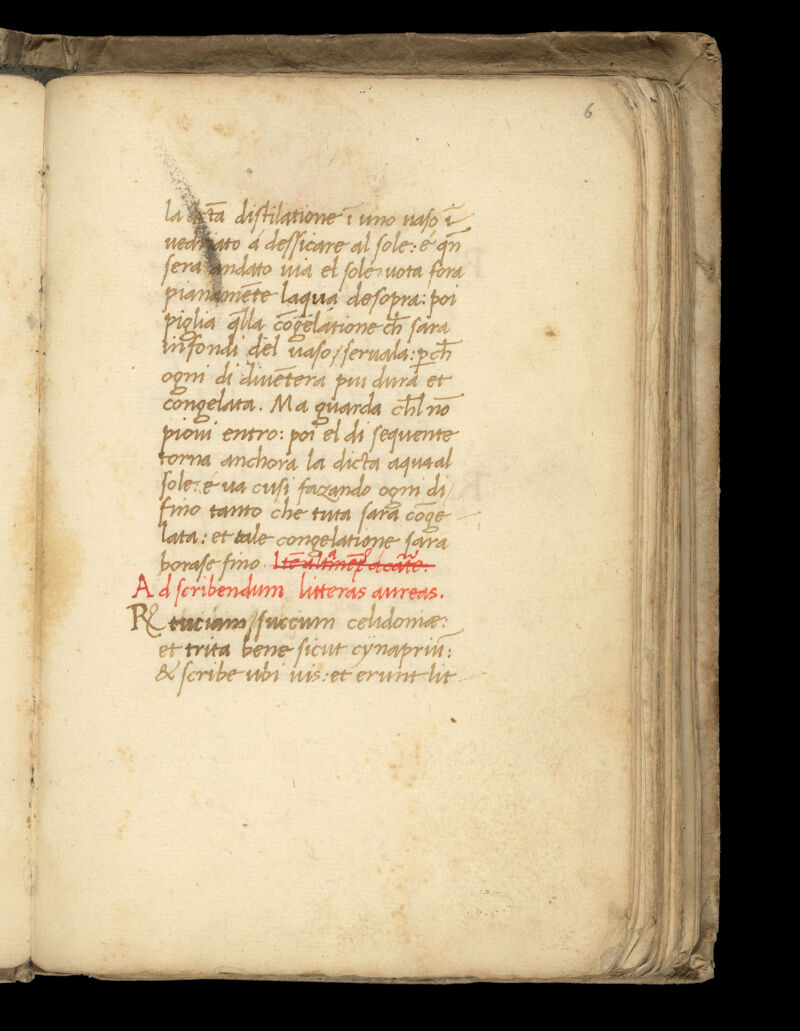 6
la dicta distilatione ī uno uaso ī
uedriato a dessicare al sole: é qñ
sera andato uia el sole uota fora
pianamēte laqua desopra: poi
piglia q̄lla cōgelatione ch̄ sara
infondi del uaso / seruala: ꝑch̄
ogni di diuētera piu dura et
congelata. Ma guarda ch̄l nō
pioui entro: poi el di sequente
torna anchora la dicta aqua al
sole: é ua cusi fazando ogni di /
fino tanto che tuta sara cōge
lata: et tale congelatione sara
borase fino.
Ad scribendum litteras aureas.
℞ tuciam / succum celidoniæ:
et trita bene sicut cynapriū:
& scribe ubi uis: et erunt lit